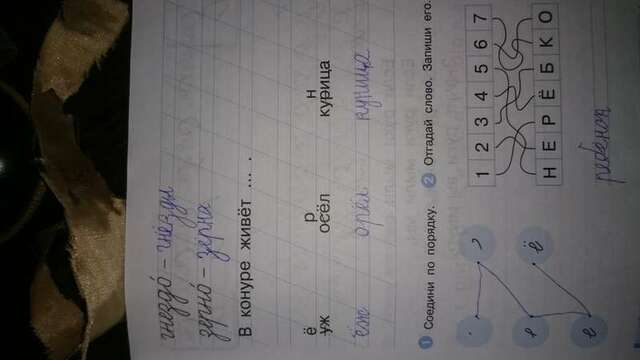 гнездо́ – гнёзды
зерно́ – зёрна
В конуре живёт ... .
ё р н
уж осёл курица
ёж орёл куница
1 Соедини по порядку. 2 Отгадай слово. Запиши его.
1 2 3 4 5 6 7
Н Е Р Ё Б К О
ребёнок